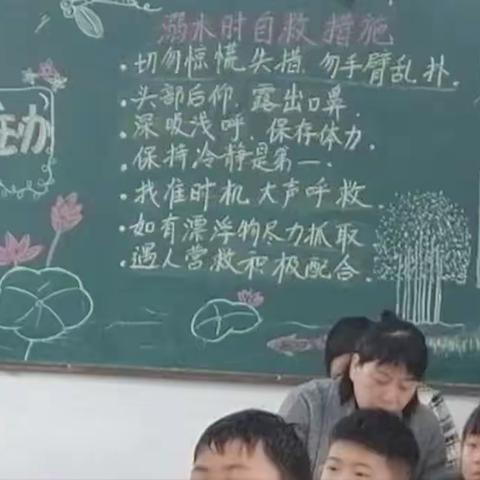 溺水时自救措施
·切勿惊慌失措，勿手臂乱扑.
·头部后仰，露出口鼻.
·深吸浅呼，保存体力.
·保持冷静是第一.
·找准时机大声呼救.
·如有漂浮物尽力抓取
·遇人营救积极配合.
主办